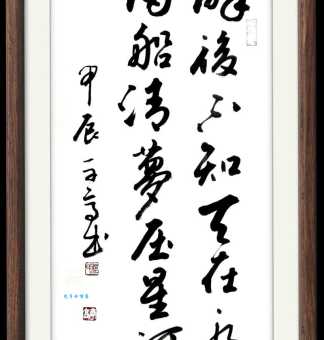 醉後不知天在水
滿船清夢压星河
甲辰